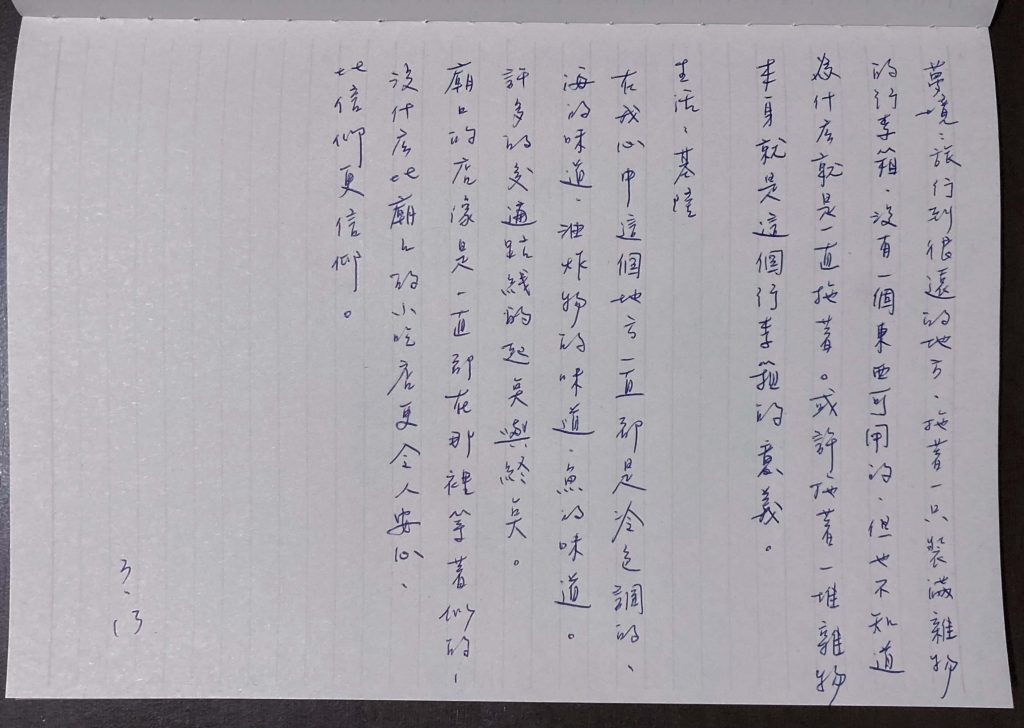 夢境：旅行到很遠的地方、拖著一只裝滿雜物
的行李箱、沒有一個東西可用的、但也不知道
為什店就是一直拖著。或許拖著一堆雜物
本身就是這個行李箱的意義。
生活：基隆
在我心中這個地方一直都是冷色調的、
海的味道、油炸物的味道、魚的味道。
許多的交通路線的起點與終點。
廟口的店像是一直都在那裡等著似的，
沒什店比廟口的小吃店更令人安心、
比信仰更信仰。
3.13